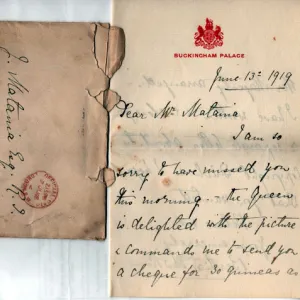 J. Matania Esq. R.I.
BUCKINGHAM PALACE
June 13th 1919
Dear Mr Matania
I am so
sorry to have missed you
this morning - the Queen
is delighted with the picture
& commands me to send you
a cheque for 30 guineas an